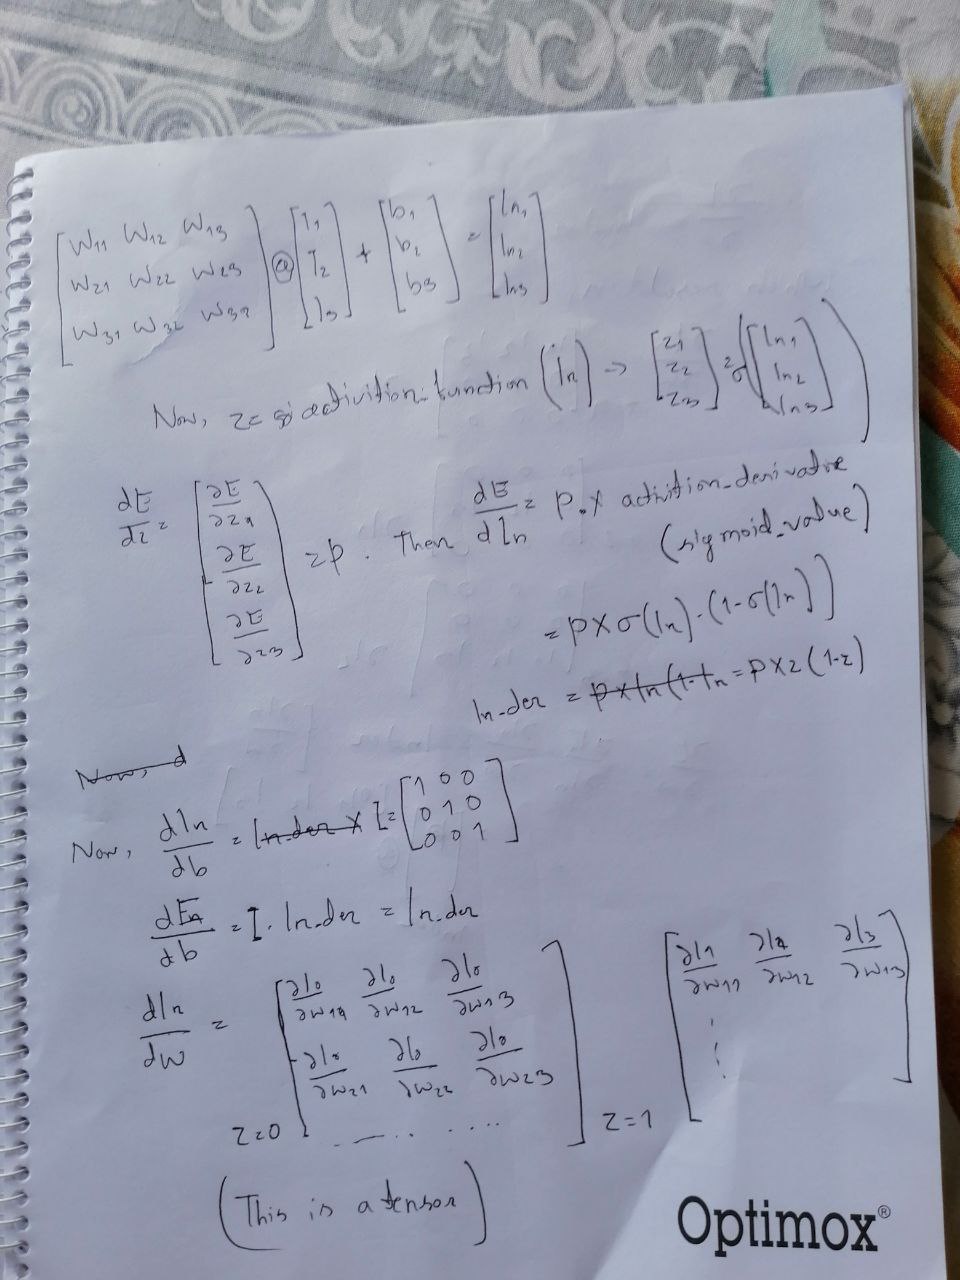 [W11 W12 W13] [I1] [b1] [ln1]
[W21 W22 W23] @ [I2] + [b2] = [ln2]
[W31 W32 W32] [I3] [b3] [ln3]
Now, z = activition_function (ln) → [z1 z2 z3] = σ([ln1 ln2 ln3])
dE/dz = [∂E/∂z1 ∂E/∂z2 ∂E/∂z3] = p. Then dE/dln = p.x activition_derivative
(sigmoid_value)
= p x σ(ln)·(1-σ(ln))
ln_der = p x ln(1-ln = p x z(1-z)
Now, d
Now, dln/db = ln_der x I = [1 0 0
0 1 0
0 0 1]
dE/db = I. ln_der = ln_der
dln/dw = [∂l0/∂w11 ∂l0/∂w12 ∂l0/∂w13
∂l0/∂w21 ∂l0/∂w22 ∂l0/∂w23
.... ....] z=0
[∂l1/∂w11 ∂l1/∂w12 ∂l3/∂w13
⋮] z=1
(This is a tensor)
Optimox®